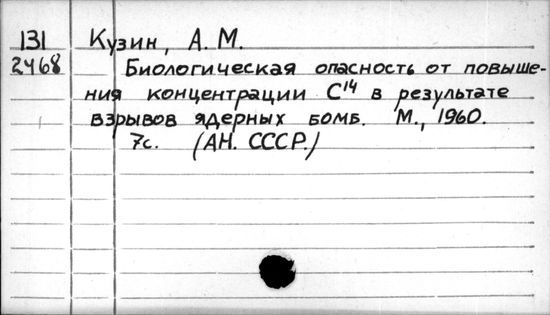 131 Кузин, А. М.
2468 Биологическая опасность от повыше-
ния концентрации C¹⁴ в результате
взрывов ядерных бомб. М., 1960.
7с. (АН. СССР.)